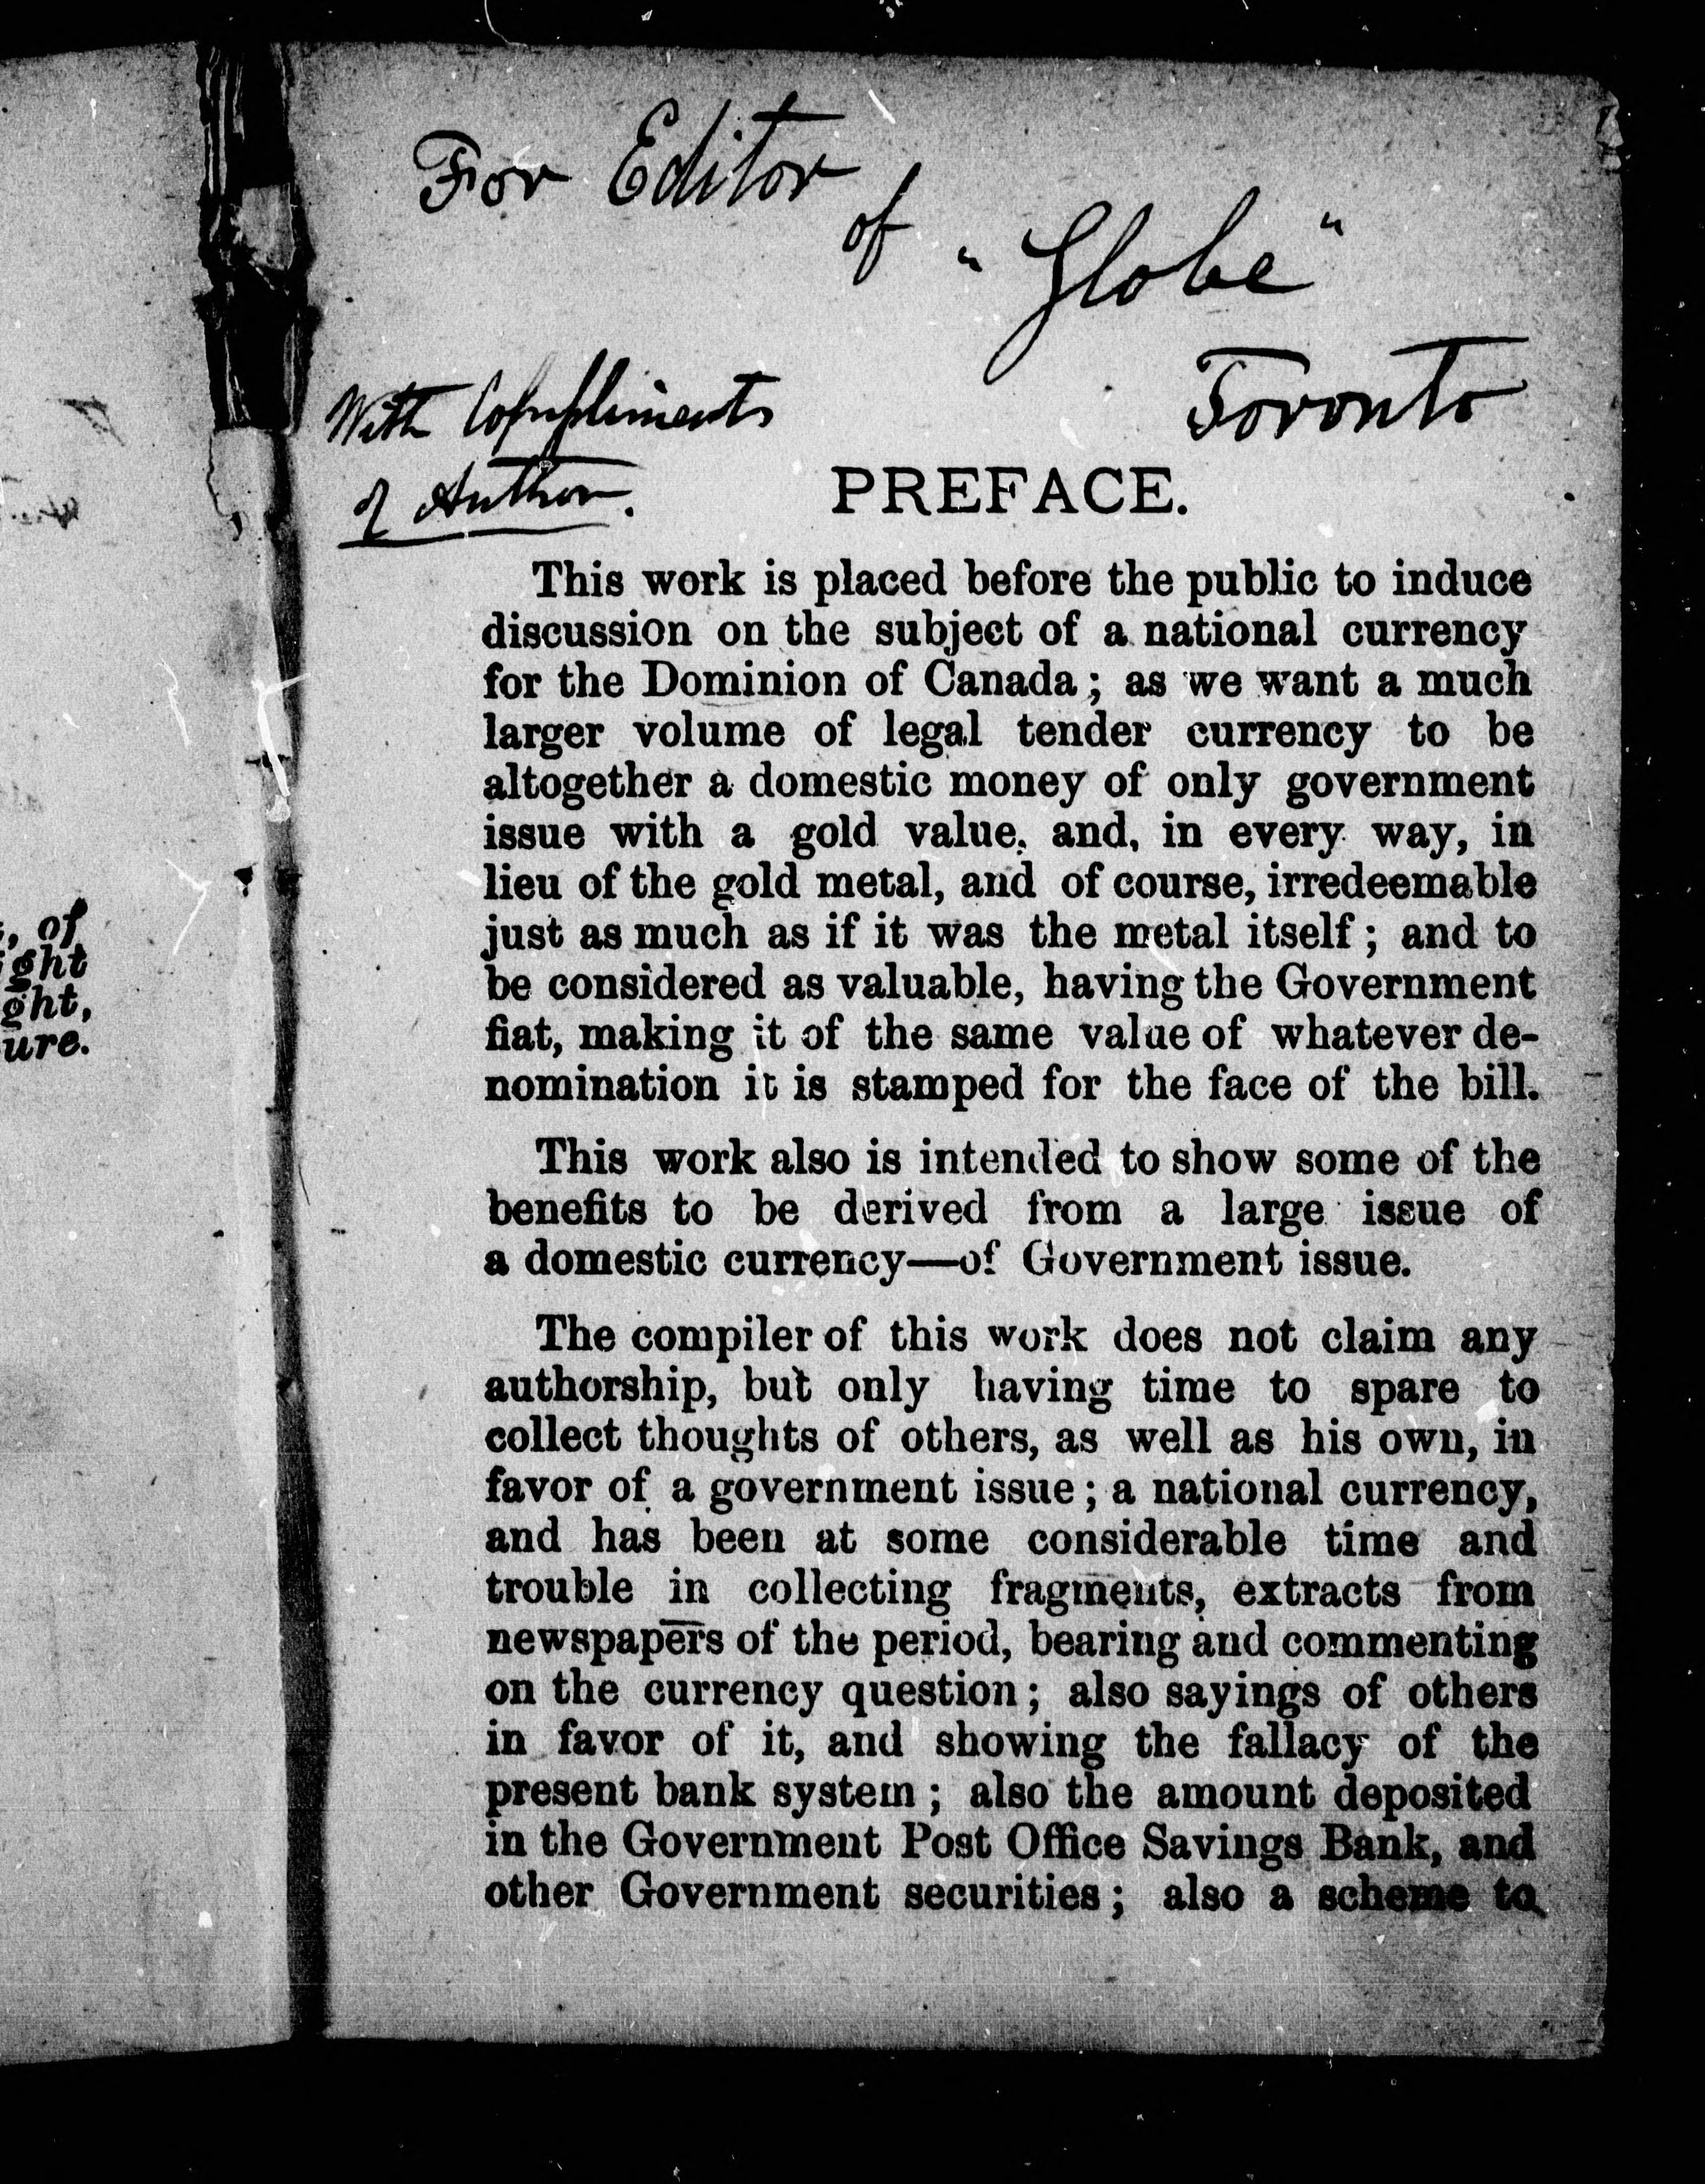 For Editor
of "Globe"
Toronto
With Compliments
of Author.
PREFACE.
This work is placed before the public to induce
discussion on the subject of a national currency
for the Dominion of Canada; as we want a much
larger volume of legal tender currency to be
altogether a domestic money of only government
issue with a gold value, and, in every way, in
lieu of the gold metal, and of course, irredeemable
just as much as if it was the metal itself; and to
be considered as valuable, having the Government
fiat, making it of the same value of whatever de-
nomination it is stamped for the face of the bill.
This work also is intended to show some of the
benefits to be derived from a large issue of
a domestic currency—of Government issue.
The compiler of this work does not claim any
authorship, but only having time to spare to
collect thoughts of others, as well as his own, in
favor of a government issue; a national currency,
and has been at some considerable time and
trouble in collecting fragments, extracts from
newspapers of the period, bearing and commenting
on the currency question; also sayings of others
in favor of it, and showing the fallacy of the
present bank system; also the amount deposited
in the Government Post Office Savings Bank, and
other Government securities; also a scheme to
, of
ght
ght,
ure.